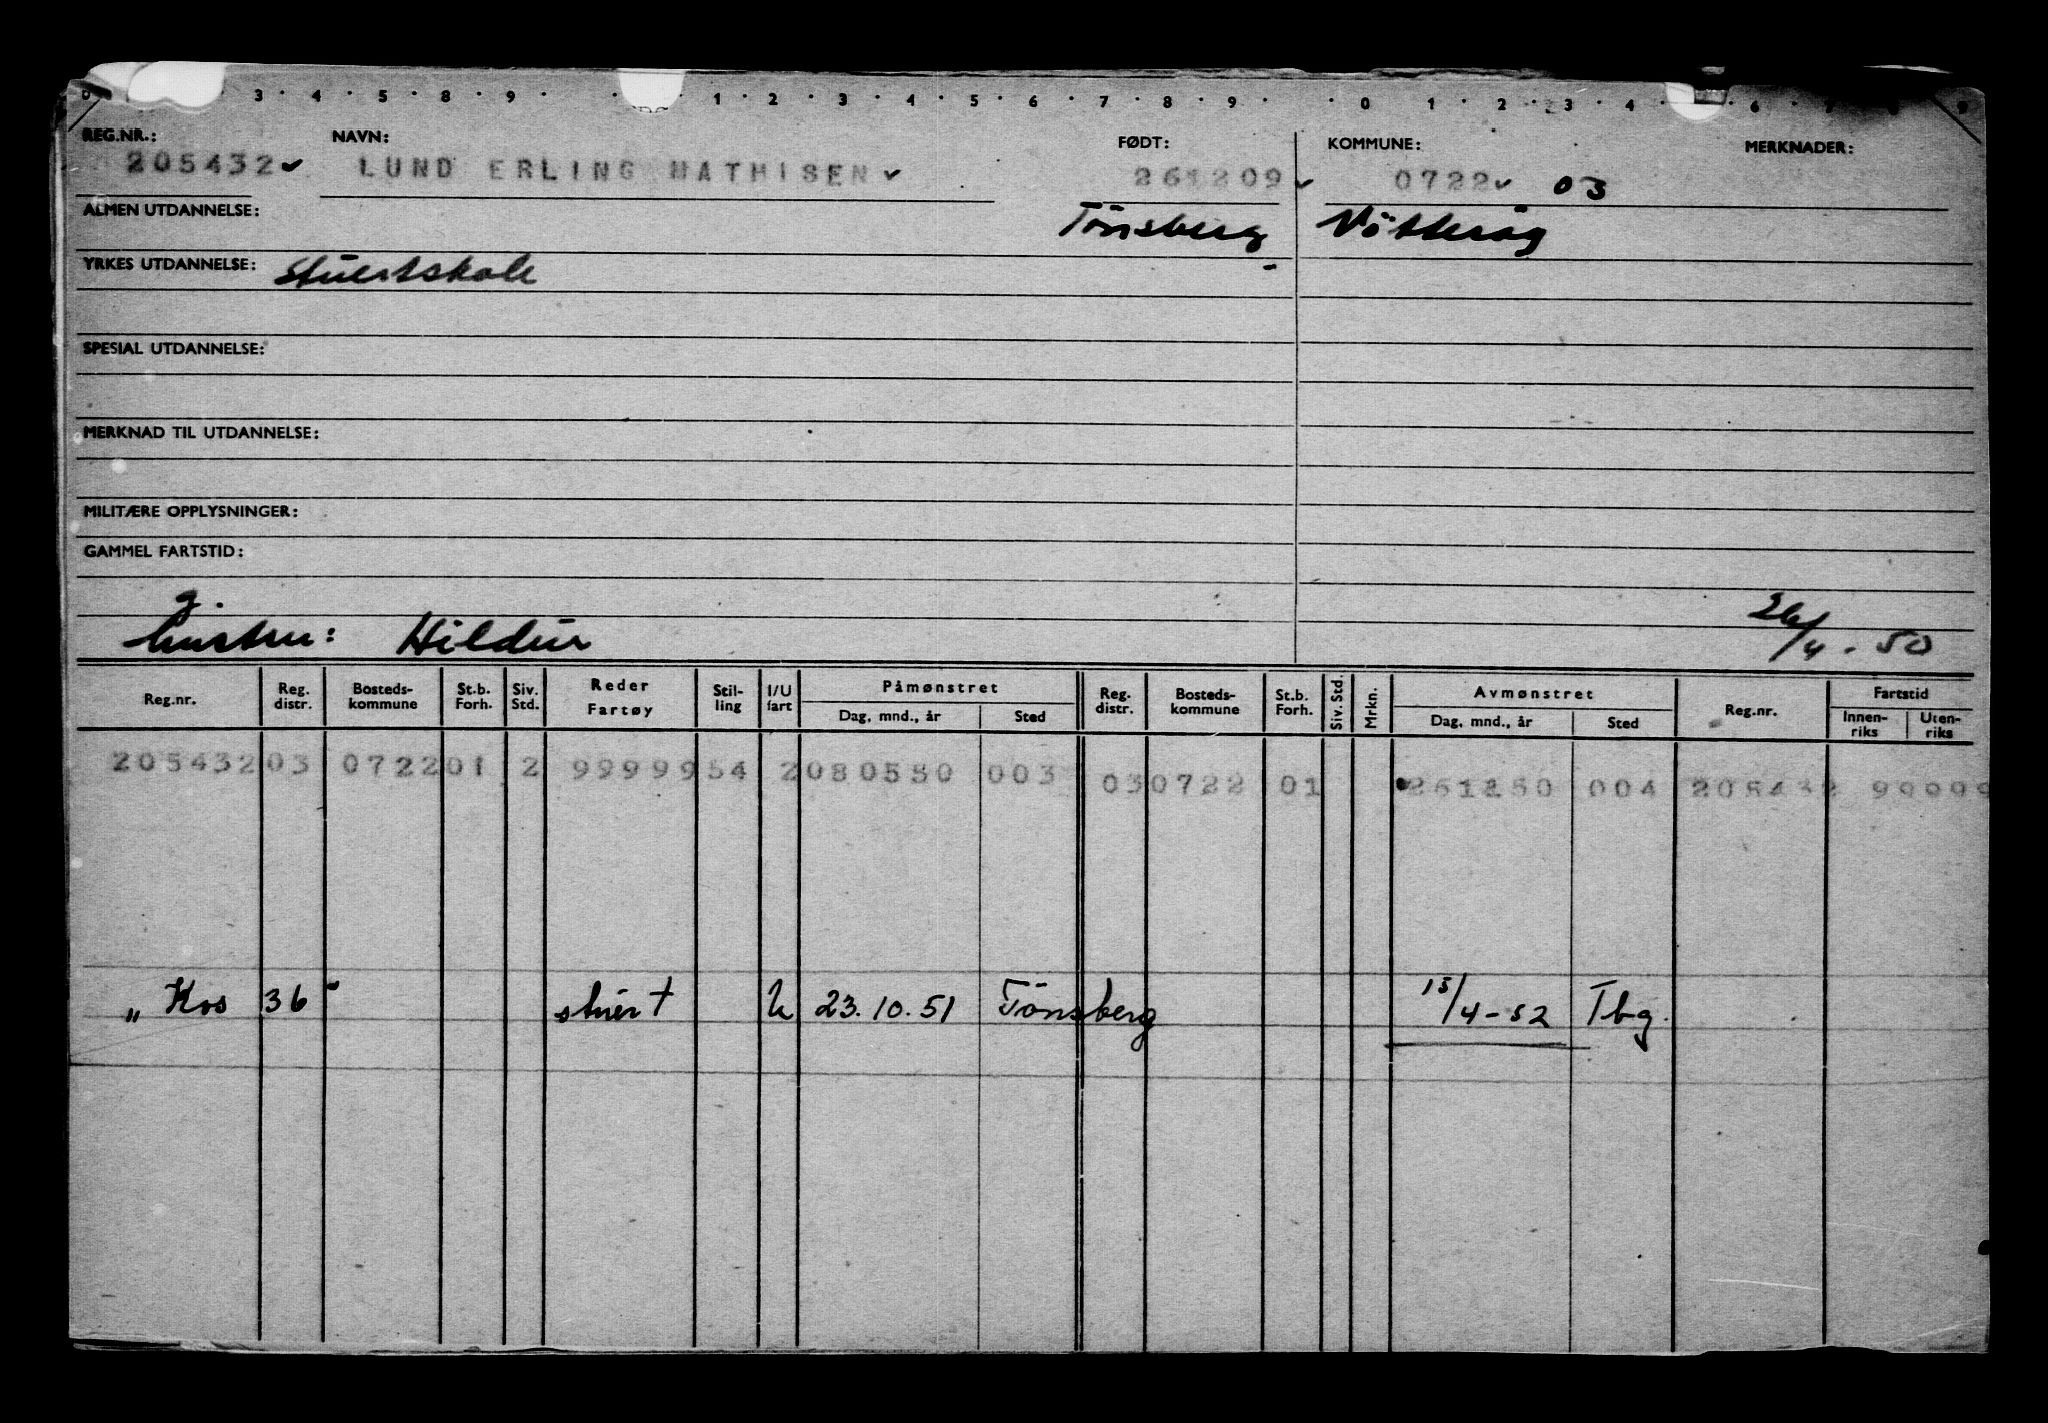 0 3 4 5 8 9 1 2 3 4 5 6 7 8 9 0 1 2 3 4 6 7 8 9
REG.NR.: NAVN: FØDT: KOMMUNE: MERKNADER:
205432 LUND ERLING MATHISEN 261209 0722 03
ALMEN UTDANNELSE: Tönsberg
YRKES UTDANNELSE: Stuertskole
SPESIAL UTDANNELSE:
MERKNAD TIL UTDANNELSE:
MILITÆRE OPPLYSNINGER:
GAMMEL FARTSTID:
g.
hustru: Hildur 26/4 - 50
Reg.nr. Reg. distr. Bosteds-kommune St.b. Forh. Siv. Std. Reder Fartøy Stil-ling I/U fart Påmønstret Dag, mnd., år Sted Reg. distr. Bosteds-kommune St.b. Forh. Siv. Std. Mrkn. Avmønstret Dag, mnd., år Sted Reg.nr. Fartstid Innen-riks Uten-riks
205432 03 0722 01 2 99999 54 2 080550 003 03 0722 01 261250 004 205432 99999
„ Kos 36 " stuert U 23.10.51 Tönsberg 15/4-52 Tbg.